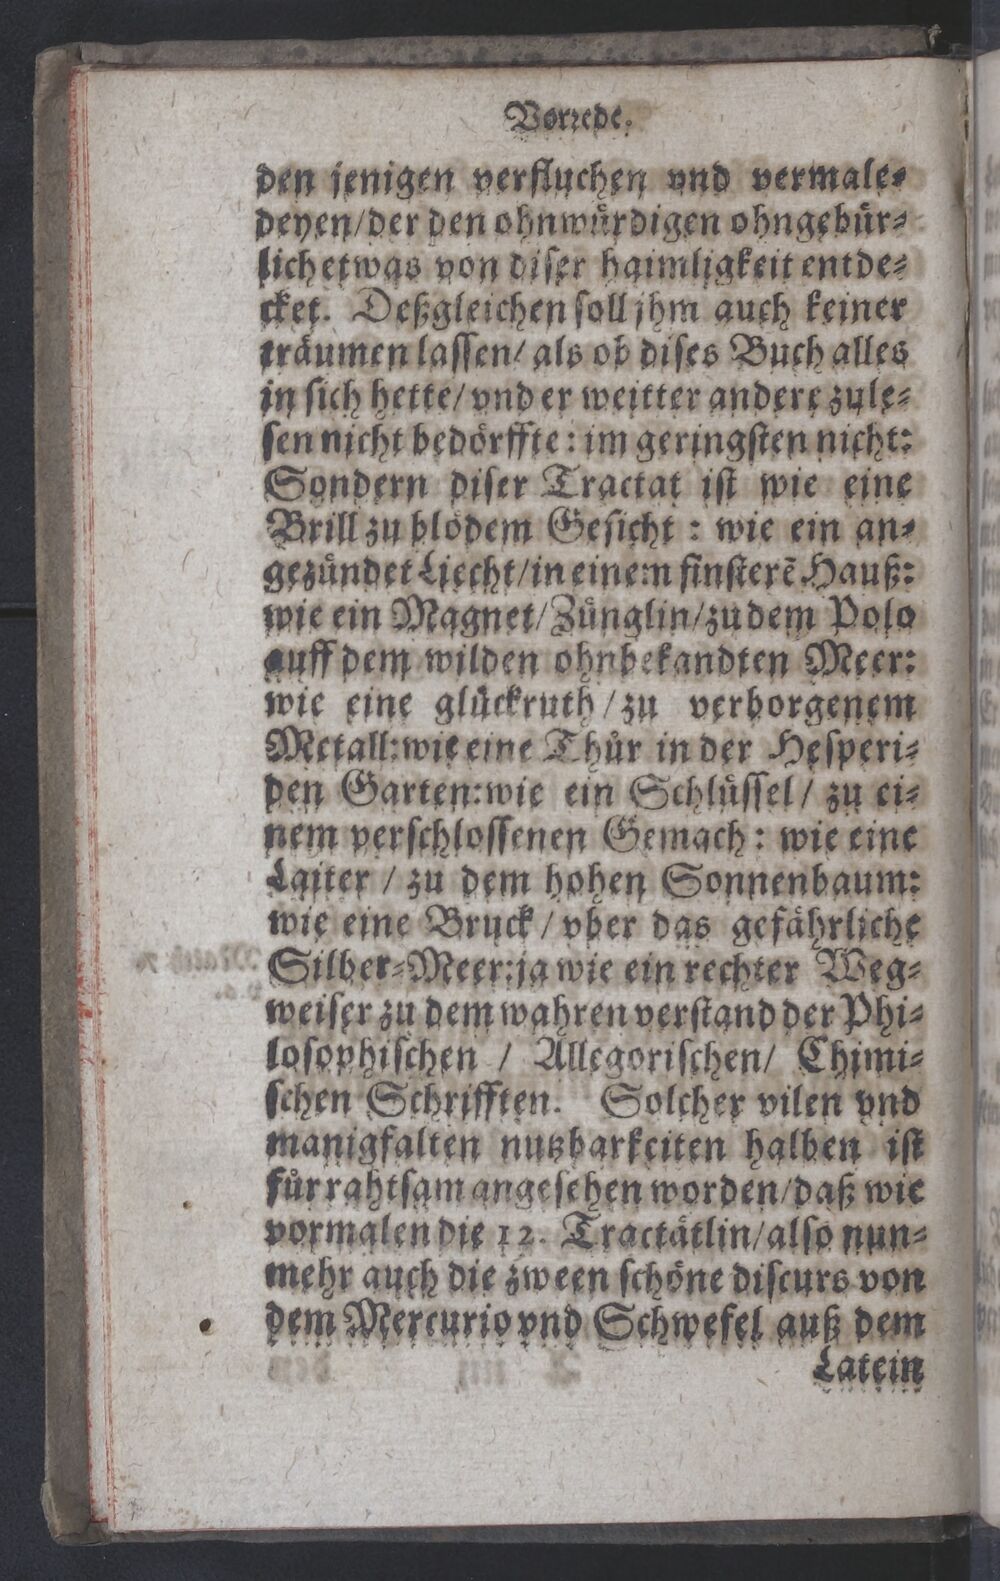 Vorrede.
den jenigen verfluchen vnd vermale-
deyen/der den ohnwürdigen ohngebür-
lich etwas von diser haimligkeit entde-
cket. Deßgleichen soll jhm auch keiner
träumen lassen/ als ob dises Buch alles
in sich hette/ vnd er weitter andere zule-
sen nicht bedörffte: im geringsten nicht:
Sondern diser Tractat ist wie eine
Brill zu blödem Gesicht : wie ein an-
gezündet Liecht/in einem finsterē Hauß:
wie ein Magnet/Zünglin/zu dem Polo
auff dem wilden ohnbekandten Meer:
wie eine glückruth / zu verborgenem
Metall:wie eine Thür in der Hesperi-
den Garten:wie ein Schlüssel/ zu ei-
nem verschlossenen Gemach: wie eine
Laiter / zu dem hohen Sonnenbaum:
wie eine Bruck / vber das gefährliche
Silber-Meer:ja wie ein rechter Weg-
weiser zu dem wahren verstand der Phi-
losophischen / Allegorischen/ Chimi-
schen Schrifften. Solcher vilen vnd
manigfalten nutzbarkeiten halben ist
für rahtsam angesehen worden/daß wie
vormalen die 12. Tractätlin/also nun-
mehr auch die zween schöne discurs von
dem Mercurio vnd Schwefel auß dem
Latein